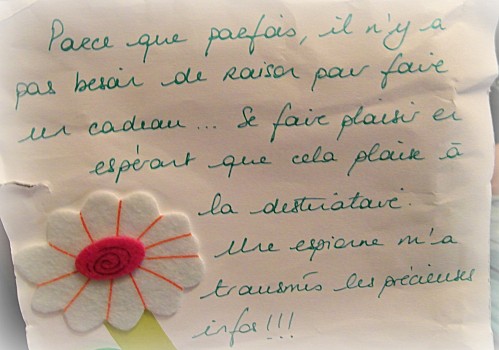 Parce que parfois, il n'y a
pas besoin de raison pour faire
un cadeau... Se faire plaisir en
espérant que cela plaise à
la destinataire.
Une espionne m'a
transmis les précieuses
infos!!!